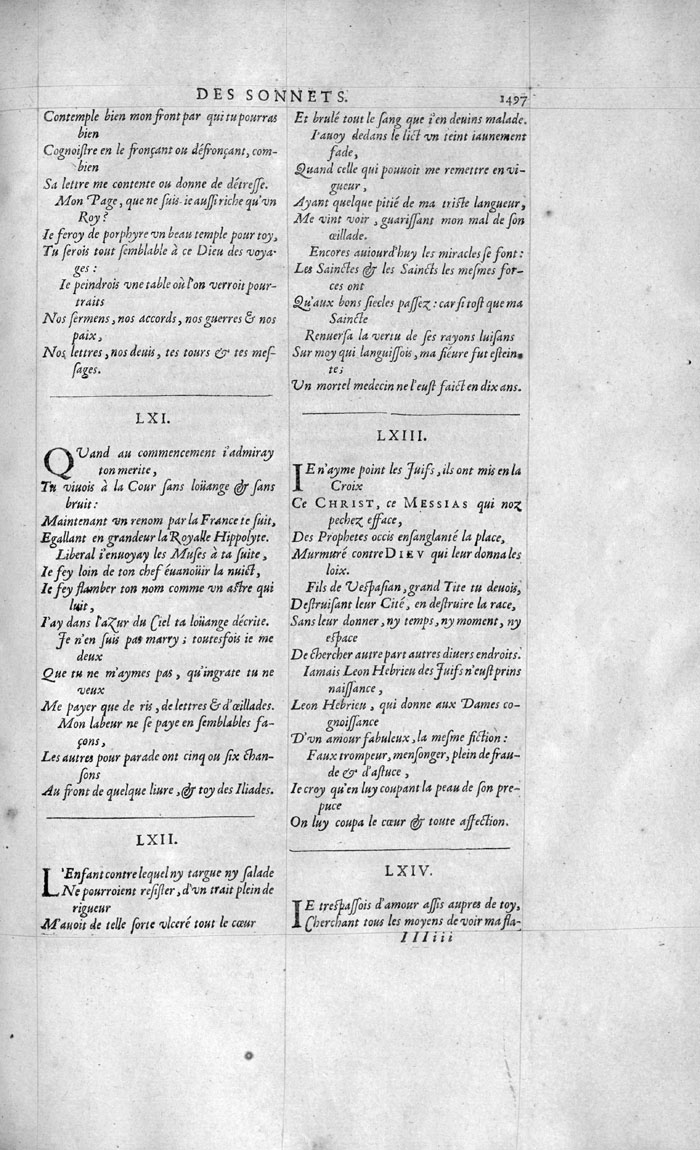 DES SONNETS.
1497
Contemple bien mon front par qui tu pourras
bien
Cognoistre en le fronçant ou défronçant, com-
bien
Sa lettre me contente ou donne de détresse.
Mon Page, que ne suis-ie aussi riche qu'vn
Roy?
Ie feroy de porphyre vn beau temple pour toy,
Tu serois tout semblable à ce Dieu des voya-
ges:
Ie peindrois vne table où l'on verroit pour-
traits
Nos sermens, nos accords, nos guerres & nos
paix,
Nos lettres, nos deuis, tes tours & tes mes-
sages.
LXI.
QVand au commencement i'admiray
ton merite,
Tu viuois à la Cour sans loüange & sans
bruit:
Maintenant vn renom par la France te suit,
Egallant en grandeur la Royalle Hippolyte.
Liberal i'enuoyay les Muses à ta suite,
Ie fey loin de ton chef éuanoüir la nuict,
Ie fey flamber ton nom comme vn astre qui
luit,
I'ay dans l'azur du Ciel ta loüange décrite.
Je n'en suis pas marry; toutesfois ie me
deux
Que tu ne m'aymes pas, qu'ingrate tu ne
veux
Me payer que de ris, de lettres & d'œillades.
Mon labeur ne se paye en semblables fa-
çons,
Les autres pour parade ont cinq ou six chan-
sons
Au front de quelque liure, & toy des Iliades.
LXII.
L'Enfant contre lequel ny targue ny salade
Ne pourroient resister, d'vn trait plein de
rigueur
M'auoit de telle sorte vlceré tout le cœur
Et brulé tout le sang que i'en deuins malade.
I'auoy dedans le lict vn teint iaunement
fade,
Quand celle qui pouuoit me remettre en vi-
gueur,
Ayant quelque pitié de ma triste langueur,
Me vint voir, guarissant mon mal de son
œillade.
Encores auiourd'huy les miracles se font:
Les Sainctes & les Saincts les mesmes for-
ces ont
Qu'aux bons siecles passez: car si tost que ma
Saincte
Renuersa la vertu de ses rayons luisans
Sur moy qui languissois, ma fiéure fut estein-
te;
Vn mortel medecin ne l'eust faict en dix ans.
LXIII.
IE n'ayme point les Juifs, ils ont mis en la
Croix
Ce CHRIST, ce MESSIAS qui noz
pechez efface,
Des Prophetes occis ensanglanté la place,
Murmuré contre DIEV qui leur donna les
loix.
Fils de Vespasian, grand Tite tu deuois,
Destruisant leur Cité, en destruire la race,
Sans leur donner, ny temps, ny moment, ny
espace
De chercher autre part autres diuers endroits.
Iamais Leon Hebrieu des Juifs n'eust prins
naissance,
Leon Hebrieu, qui donne aux Dames co-
gnoissance
D'vn amour fabuleux, la mesme fiction:
Faux trompeur, mensonger, plein de frau-
de & d'astuce,
Ie croy qu'en luy coupant la peau de son pre-
puce
On luy coupa le cœur & toute affection.
LXIV.
IE trespassois d'amour assis aupres de toy,
Cherchant tous les moyens de voir ma fla-
IIIiii